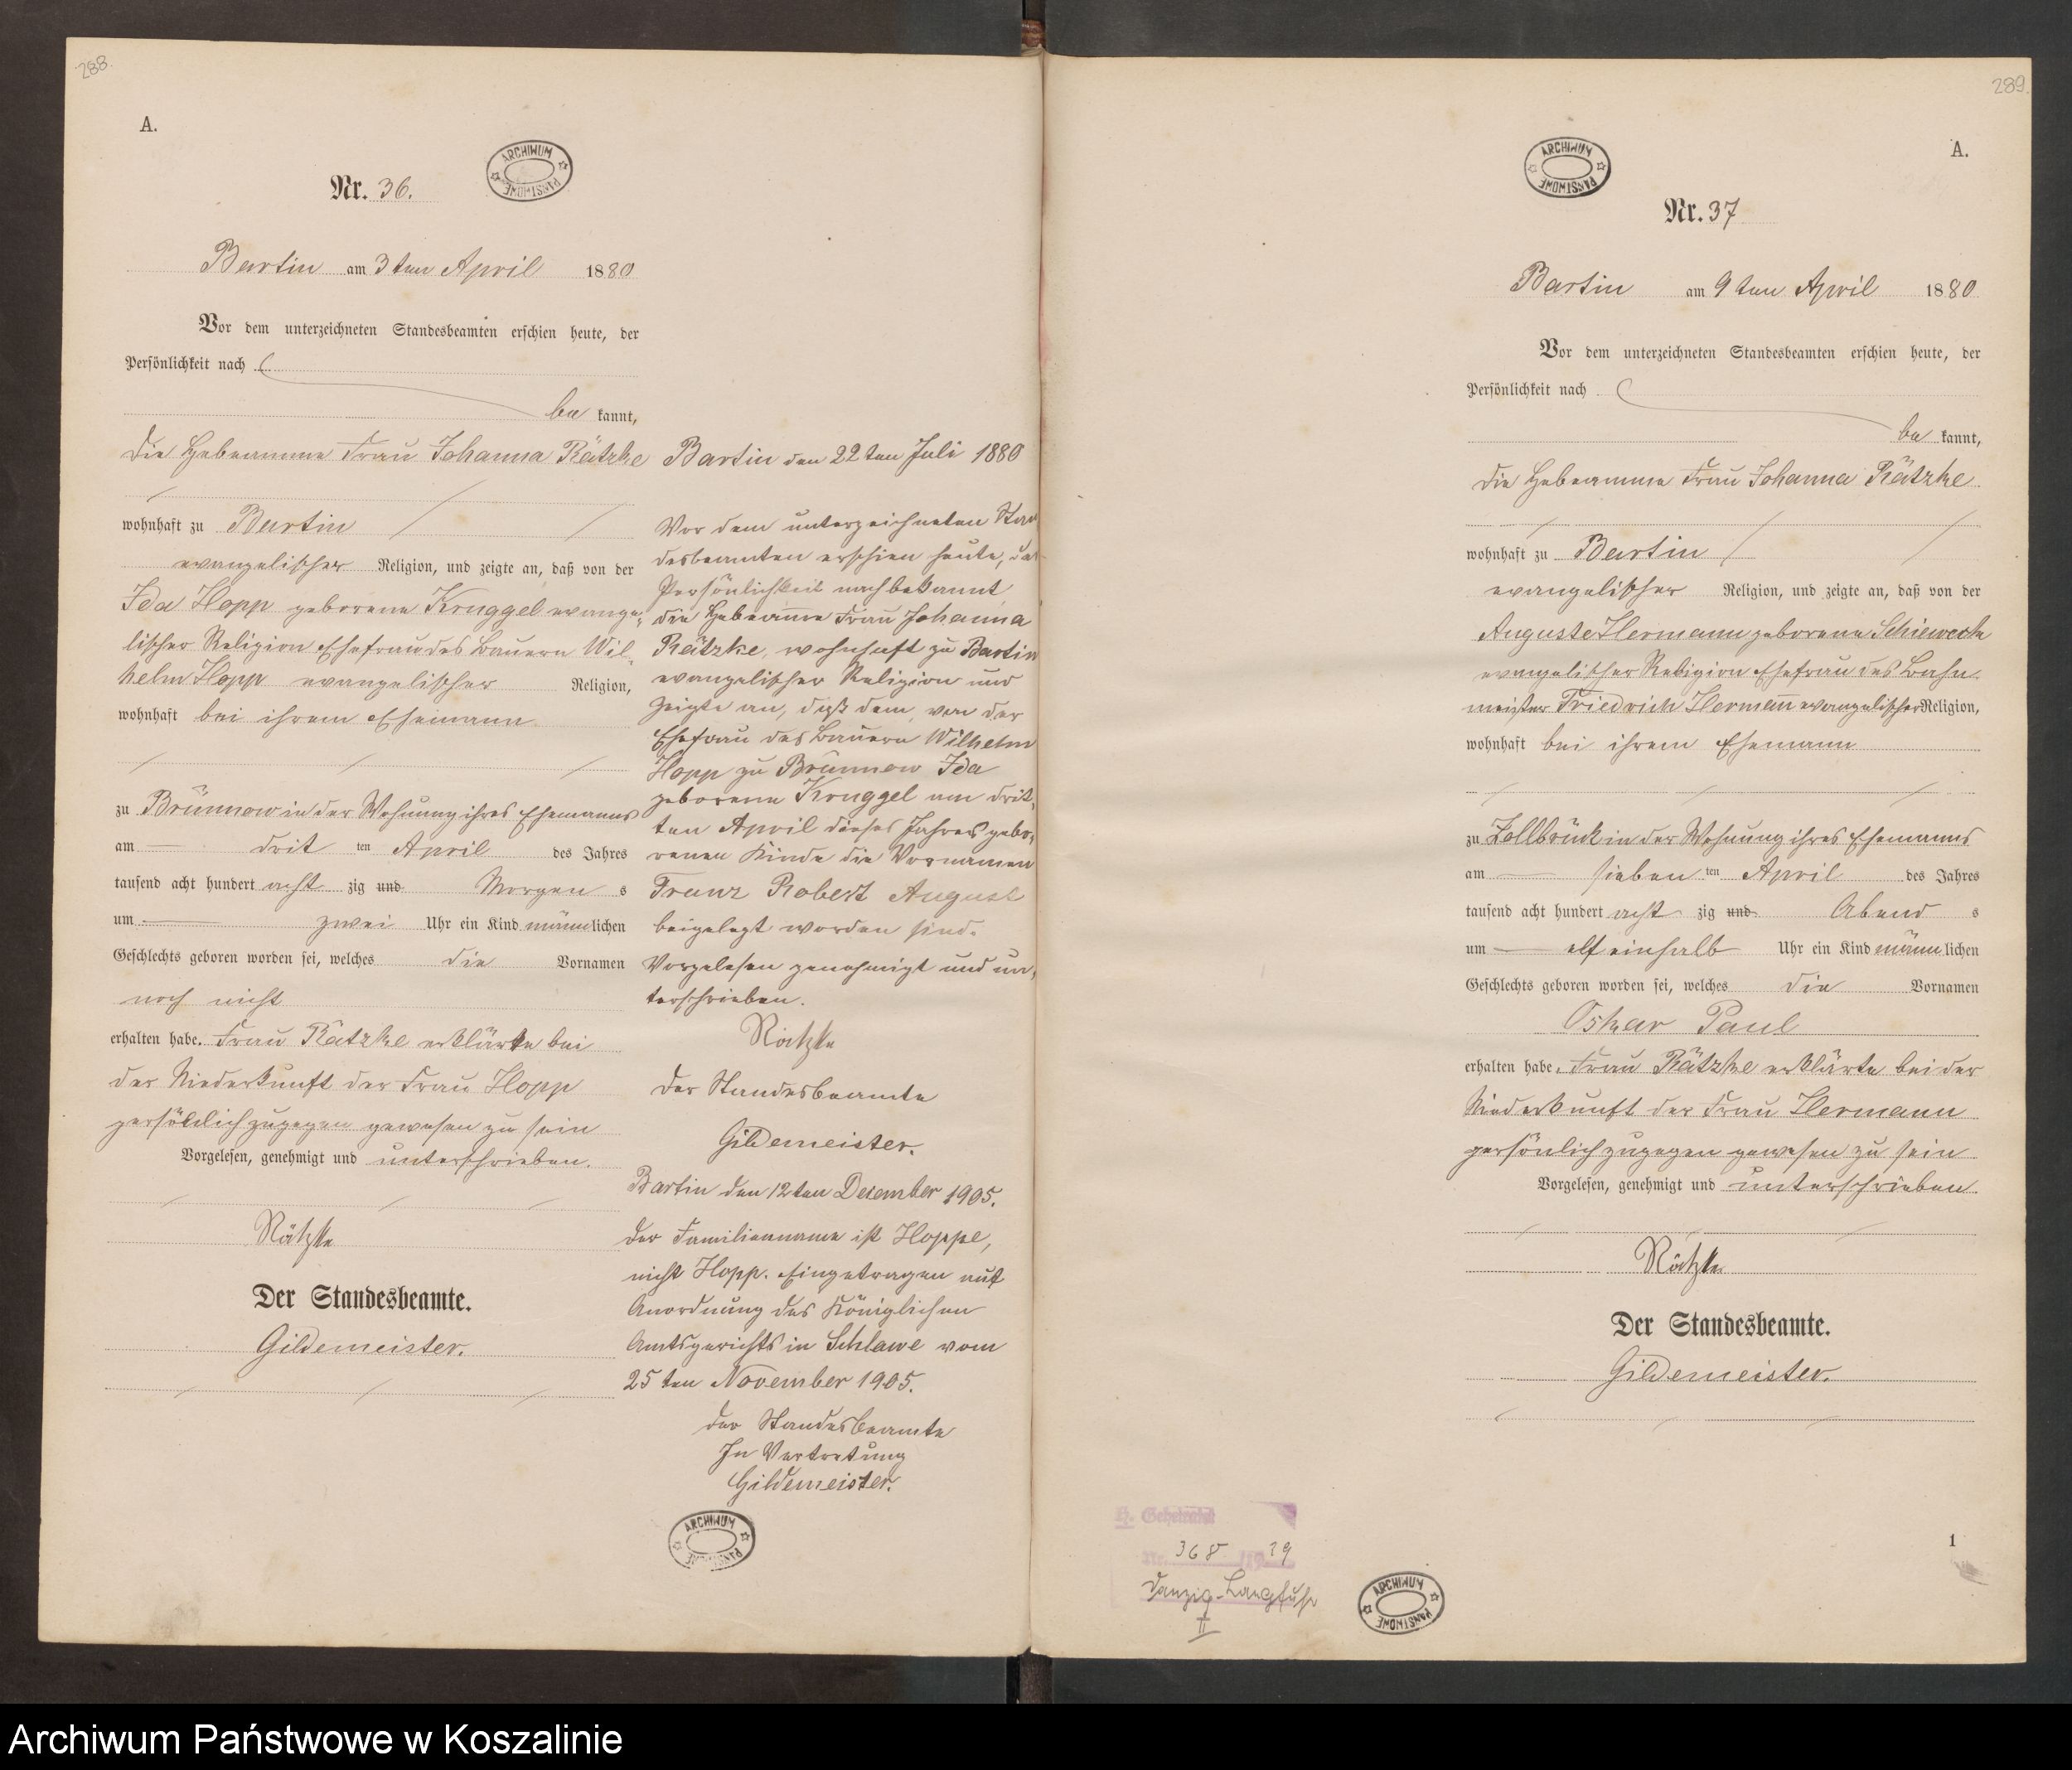 288.
A.
ARCHIWUM PAŃSTWOWE
Nr. 36.
Bartin am 3ten April 1880
Vor dem unterzeichneten Standesbeamten erschien heute, der
Persönlichkeit nach
be kannt,
die Hebeamme Frau Johanna Rätzke
wohnhaft zu Bartin
evangelischer Religion, und zeigte an, daß von der
Ida Hopp geborene Kruggel evange-
lischer Religion Ehefrau des Bauern Wil-
helm Hopp evangelischer Religion,
wohnhaft bei ihrem Ehemann
zu Brünnow in der Wohnung ihres Ehemanns
am drit ten April des Jahres
tausend acht hundert acht zig und Morgen s
um zwei Uhr ein Kind männlichen
Geschlechts geboren worden sei, welches die Vornamen
noch nicht
erhalten habe. Frau Rätzke erklärte bei
der Niederkunft der Frau Hopp
persönlich zugegen gewesen zu sein
Vorgelesen, genehmigt und unterschrieben.
Rätzke
Der Standesbeamte.
Gildemeister.
Bartin den 22ten Juli 1880
Vor dem unterzeichneten Stan
desbeamten erschien heute, der
Persönlichkeit nach bekannt
die Hebeam̄e Frau Johanna
Rätzke, wohnhaft zu Bartin
evangelischer Religion und
zeigte an, daß dem, von der
Ehefrau des Bauern Wilhelm
Hopp zu Brünnow Ida
geborene Kruggel am drit-
ten April dieses Jahres gebo-
renen Kinde die Vornamen
Franz Robert August
beigelegt worden sind.
Vorgelesen genehmigt und un-
terschrieben.
Rätzke
Der Standesbeamte
Gildemeister.
Bartin den 12ten Dezember 1905.
Der Familienname ist Hoppe,
nicht Hopp. Eingetragen auf
Anordnung des Königlichen
Amtsgerichts in Schlawe vom
25ten November 1905.
Der Standesbeamte
In Vertretung
Gildemeister.
ARCHIWUM PAŃSTWOWE
289.
A.
ARCHIWUM PAŃSTWOWE
Nr. 37
Bartin am 9ten April 1880
Vor dem unterzeichneten Standesbeamten erschien heute, der
Persönlichkeit nach
be kannt,
die Hebeamme Frau Johanna Rätzke
wohnhaft zu Bartin
evangelischer Religion, und zeigte an, daß von der
Auguste Hermann geborene Schieweck
evangelischer Religion Ehefrau des Bahn-
meister Friedrich Herman̄ evangelischer Religion,
wohnhaft bei ihrem Ehemann
zu Zollbrück in der Wohnung ihres Ehemanns
am sieben ten April des Jahres
tausend acht hundert acht zig und Abend s
um elf einhalb Uhr ein Kind männ lichen
Geschlechts geboren worden sei, welches die Vornamen
Oskar Paul
erhalten habe. Frau Rätzke erklärte bei der
Niederkunft der Frau Hermann
persönlich zugegen gewesen zu sein
Vorgelesen, genehmigt und unterschrieben.
Rätzke
Der Standesbeamte.
Gildemeister.
1
Nr. 368 /19 29
Danzig-Langfuhr
II
ARCHIWUM PAŃSTWOWE
Archiwum Państwowe w Koszalinie